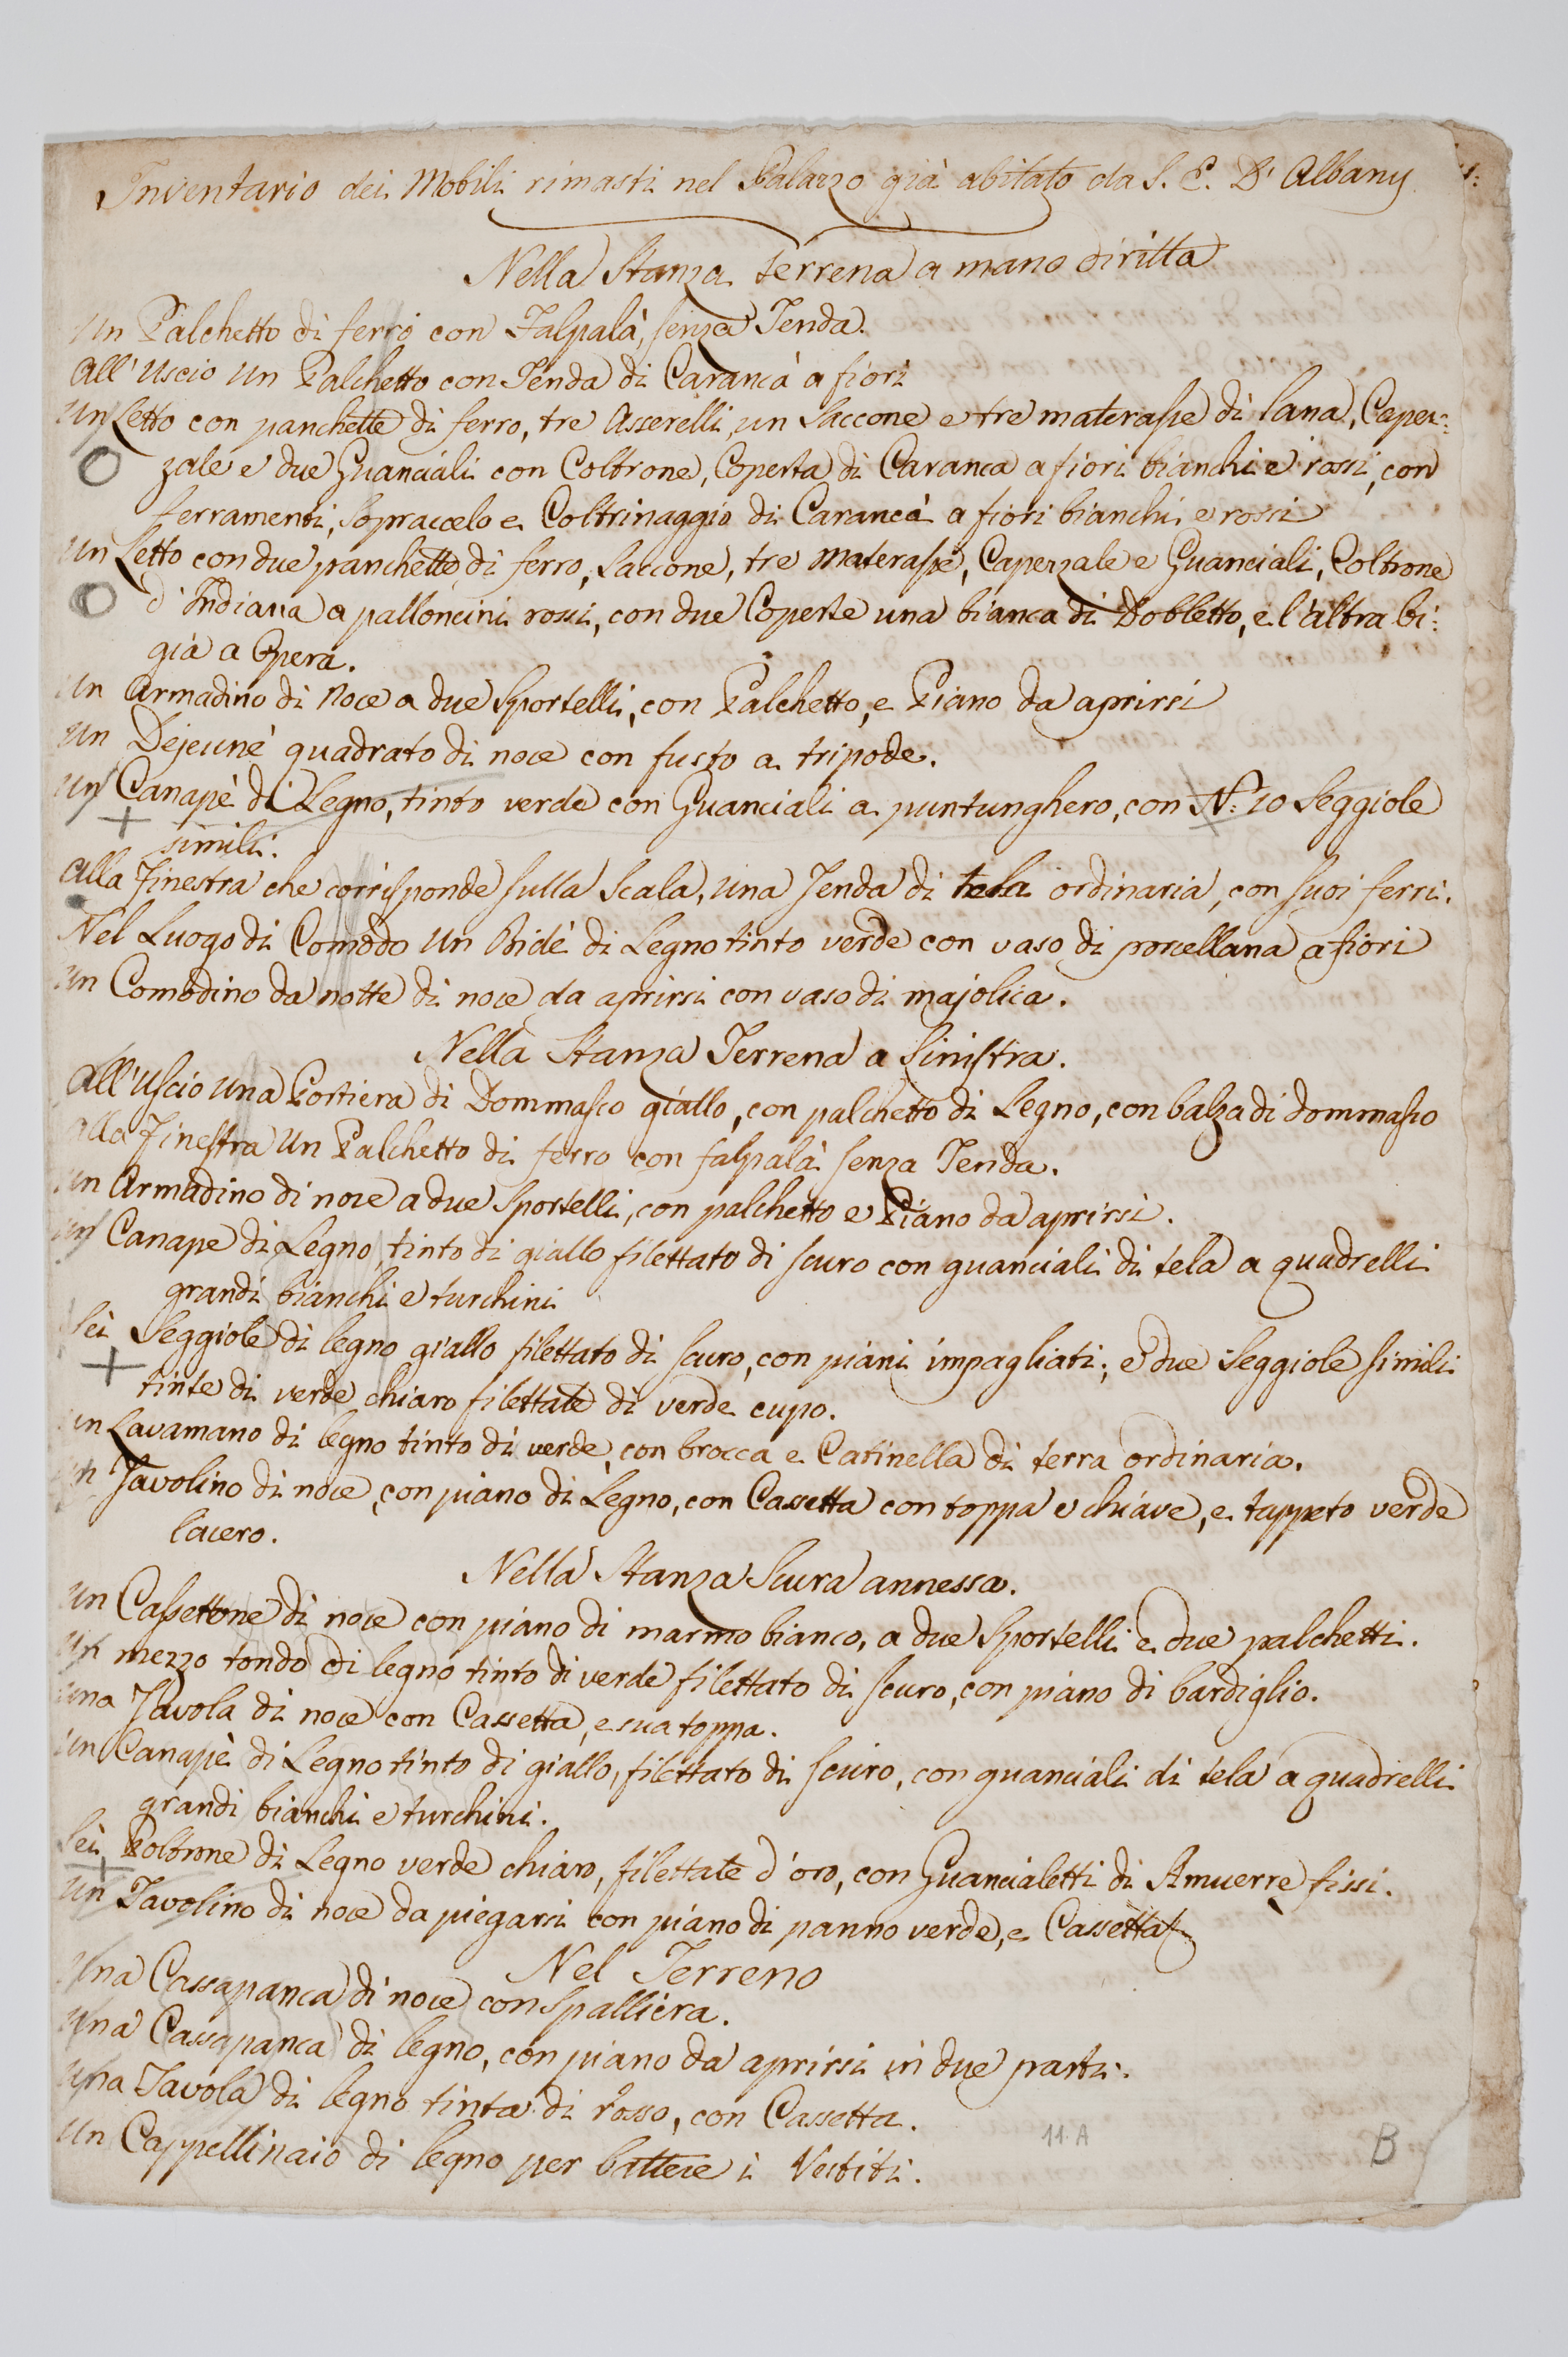 Inventario dei Mobili rimasti nel Palazzo già abitato da S. E. D' Albany
Nella Stanza terrena a mano diritta
Un Palchetto di ferro con Falpalà, senza Tenda.
All' Uscio un Palchetto con Tenda di Carancà a fiori
Un Letto con panchette di ferro, tre Asserelli, un Saccone e tre materasse di lana, Caper=
zale e due Guanciali con Coltrone, Coperta di Caranca a fiori bianchi e rossi, con
ferramenti, Sopraccelo e Coltrinaggio di Carancà a fiori bianchi e rossi
Un Letto con due panchette di ferro, Saccone, tre materasse, Caperzale e Guanciali, Coltrone
d' Indiana a palloncini rossi, con due Coperte una bianca di Dobletto, e l'altra bi=
gia a Opera.
Un Armadino di Noce a due Sportelli, con Palchetto, e Piano da aprirsi
Un Dejeuné quadrato di noce con fusto a tripode.
Un Canapè di Legno, tinto verde con Guanciali a puntunghero, con N.: 10 Seggiole
simili.
Alla Finestra che corrisponde sulla Scala, una Tenda di tela ordinaria, con suoi ferri.
Nel Luogo di Comodo Un Bidè di Legno tinto verde con vaso di porcellana a fiori
Un Comodino da notte di noce da aprirsi con vaso di majolica.
Nella Stanza Terrena a Sinistra.
All' Uscio una Portiera di Dommasco giallo, con palchetto di Legno, con balza di dommasco
Alla Finestra Un Palchetto di ferro con falpalà senza Tenda.
Un Armadino di noce a due Sportelli, con palchetto e Piano da aprirsi.
Un Canape di Legno, tinto di giallo filettato di scuro con guanciali di tela a quadrelli
grandi bianchi e turchini
Sei Seggiole di legno giallo filettato di scuro, con piani impagliati; e due Seggiole simili
tinte di verde chiaro filettate di verde cupo.
Un Lavamano di legno tinto di verde, con brocca e Catinella di terra ordinaria.
Un Tavolino di noce, con piano di Legno, con Cassetta con toppa e chiave, e tappeto verde
lacero.
Nella Stanza Scura annessa.
Un Cassettone di noce con piano di marmo bianco, a due Sportelli e due palchetti.
Un mezzo tondo di legno tinto di verde filettato di scuro, con piano di bardiglio.
Una Tavola di noce con Cassetta, e sua toppa.
Un Canapè di Legno tinto di giallo, filettato di scuro, con guanciali di tela a quadrelli
grandi bianchi e turchini.
Sei Poltrone di Legno verde chiaro, filettate d' oro, con Guancialetti di Amuerre fissi.
Un Tavolino di noce da piegarsi con piano di panno verde, e Cassetta
Nel Terreno
Una Cassapanca di noce con Spalliera.
Una Cassapanca di legno, con piano da aprirsi in due parti.
Una Tavola di legno tinta di rosso, con Cassetta.
Un Cappellinaio di legno per battere i Vestiti.
11. A
B